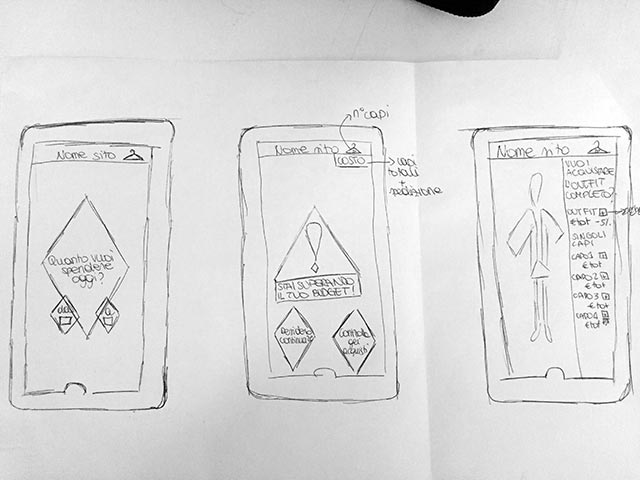 Nome sito
Quanto vuoi
spendere
oggi?
da
a
n° capi
Nome sito
COSTO
capi
totali
+
spedizione
!
STAI SUPERANDO
IL TUO BUDGET!
continuare
controlla
acquisti
Nome sito
VUOI
ACQUISTARE
L'OUTFIT
COMPLETO?
OUTFIT
€tot -5%
SINGOLI
CAPI
CAPO 1
€tot
CAPO 2
€tot
CAPO 3
€tot
CAPO 4
€tot